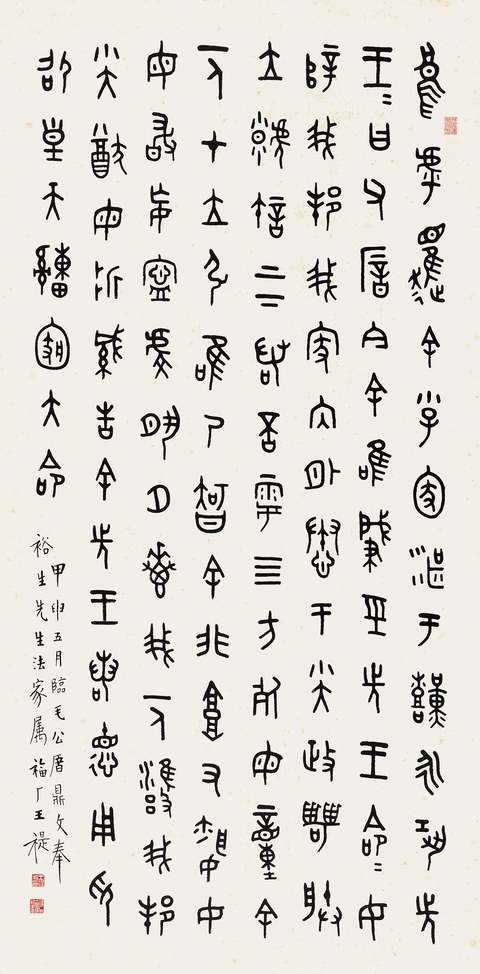 烏虖趯余小子圂湛于艱永鞏先
王=曰父厝今余唯肇巠先王命=女
辥我邦我家內外惷于小大政甹朕
立虩許上下若否雩四方死毋童余
一人才立弘唯乃智余非𩫏又昏女
毋敢妄寧虔夙夕惠我一人雍我邦
小大猷毋折緘告余先王若德用卬
卲皇天緟𤔲大命
甲申五月臨毛公厝鼎文奉
裕生先生法家属 福厂王禔